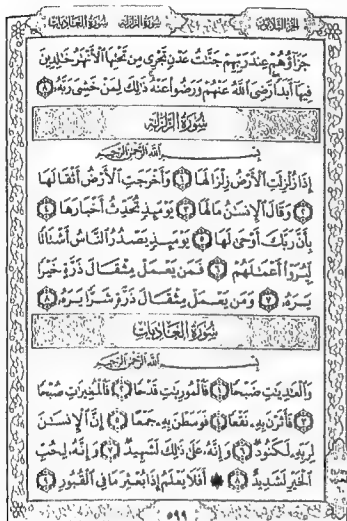 الجزء الثلاثون سورة الزلزلة سورة العاديات
جَزَآؤُهُمْ عِندَ رَبِّهِمْ جَنَّٰتُ عَدْنٍ تَجْرِى مِن تَحْتِهَا ٱلْأَنْهَٰرُ خَٰلِدِينَ
فِيهَآ أَبَدًا رَّضِىَ ٱللَّهُ عَنْهُمْ وَرَضُوا۟ عَنْهُ ذَٰلِكَ لِمَنْ خَشِىَ رَبَّهُۥ ٨
سُورَةُ الزَّلْزَلَةِ
بِسْمِ ٱللَّهِ ٱلرَّحْمَٰنِ ٱلرَّحِيمِ
إِذَا زُلْزِلَتِ ٱلْأَرْضُ زِلْزَالَهَا ١ وَأَخْرَجَتِ ٱلْأَرْضُ أَثْقَالَهَا
٢ وَقَالَ ٱلْإِنسَٰنُ مَا لَهَا ٣ يَوْمَئِذٍ تُحَدِّثُ أَخْبَارَهَا ٤
بِأَنَّ رَبَّكَ أَوْحَىٰ لَهَا ٥ يَوْمَئِذٍ يَصْدُرُ ٱلنَّاسُ أَشْتَاتًا
لِّيُرَوْا۟ أَعْمَٰلَهُمْ ٦ فَمَن يَعْمَلْ مِثْقَالَ ذَرَّةٍ خَيْرًا
يَرَهُۥ ٧ وَمَن يَعْمَلْ مِثْقَالَ ذَرَّةٍ شَرًّا يَرَهُۥ ٨
سُورَةُ العَادِيَاتِ
بِسْمِ ٱللَّهِ ٱلرَّحْمَٰنِ ٱلرَّحِيمِ
وَٱلْعَٰدِيَٰتِ ضَبْحًا ١ فَٱلْمُورِيَٰتِ قَدْحًا ٢ فَٱلْمُغِيرَٰتِ صُبْحًا
٣ فَأَثَرْنَ بِهِۦ نَقْعًا ٤ فَوَسَطْنَ بِهِۦ جَمْعًا ٥ إِنَّ ٱلْإِنسَٰنَ
لِرَبِّهِۦ لَكَنُودٌ ٦ وَإِنَّهُۥ عَلَىٰ ذَٰلِكَ لَشَهِيدٌ ٧ وَإِنَّهُۥ لِحُبِّ
ٱلْخَيْرِ لَشَدِيدٌ ٨ ۞ أَفَلَا يَعْلَمُ إِذَا بُعْثِرَ مَا فِى ٱلْقُبُورِ ٩
٥٩٩